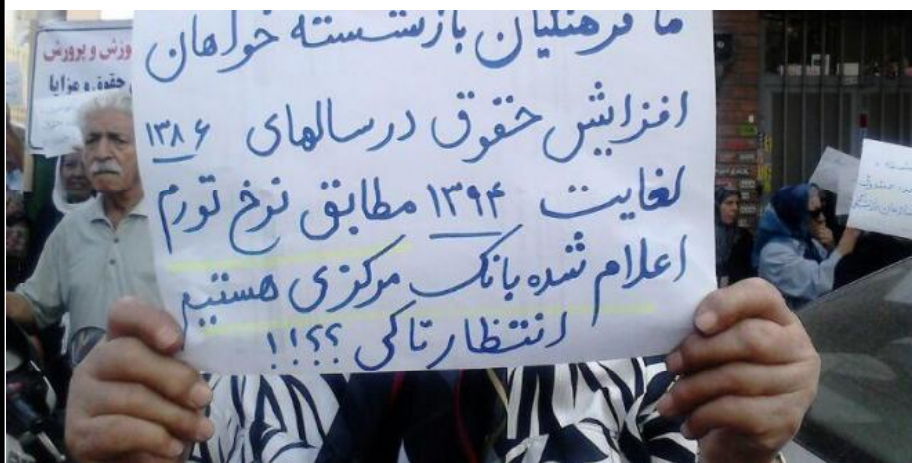 ما فرهنگیان بازنشسته خواهان
افزایش حقوق در سالهای ۱۳۸۶
لغایت ۱۳۹۴ مطابق نرخ تورم
اعلام شده بانک مرکزی هستیم
انتظار تا کی ؟؟؟!!!
وزش و پرورش
حقوق و مزایا